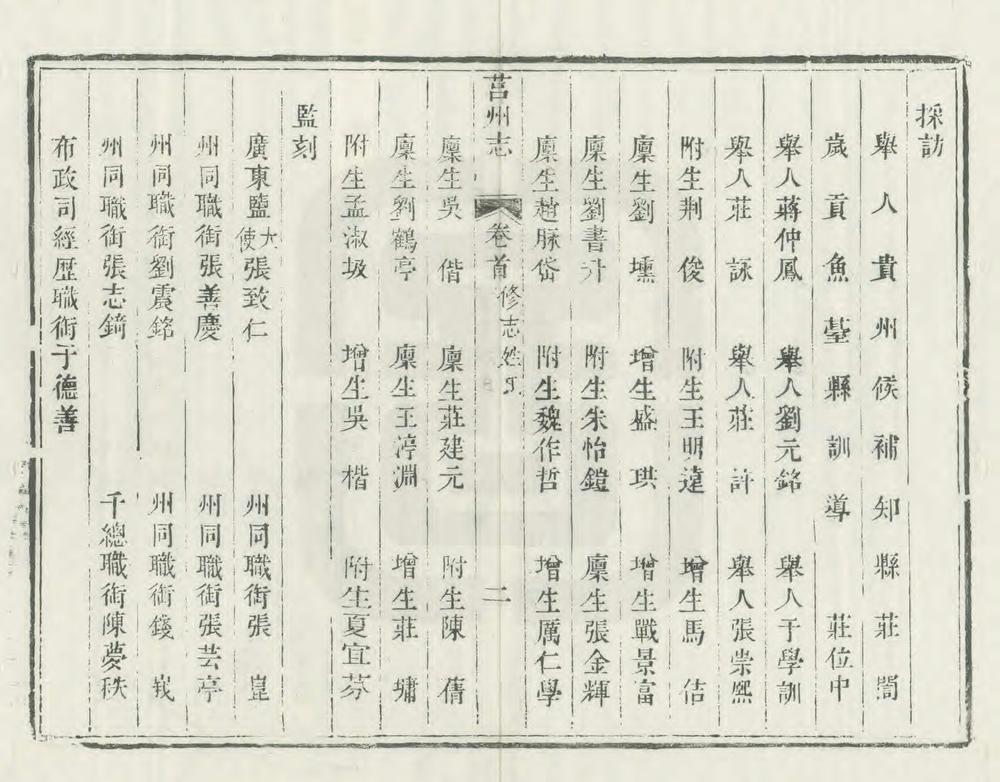 採訪
舉人貴州候補知縣莊誾
歲貢魚臺縣訓導 莊位中
舉人蔣仲鳳 舉人劉元銘 舉人于學訓
舉人莊詠 舉人莊許 舉人張崇熙
附生荆俊 附生王明遠 增生馬佶
廩生劉壎 增生盛琪 增生戰景富
廩生劉書升 附生朱怡鎧 廩生張金輝
廩生趙脈岱 附生魏作哲 增生厲仁學
莒州志 卷首 修志姓氏 二
廩生吳偕 廩生莊建元 附生陳倩
廩生劉鶴亭 廩生王渟淵 增生莊墉
附生孟淑圾 增生吳楷 附生夏宜芬
監刻
廣東鹽大使張致仁 州同職銜張崑
州同職銜張善慶 州同職銜張芸亭
州同職銜劉震銘 州同職銜錢峩
州同職銜張志錡 千總職銜陳夢秩
布政司經歷職銜于德善